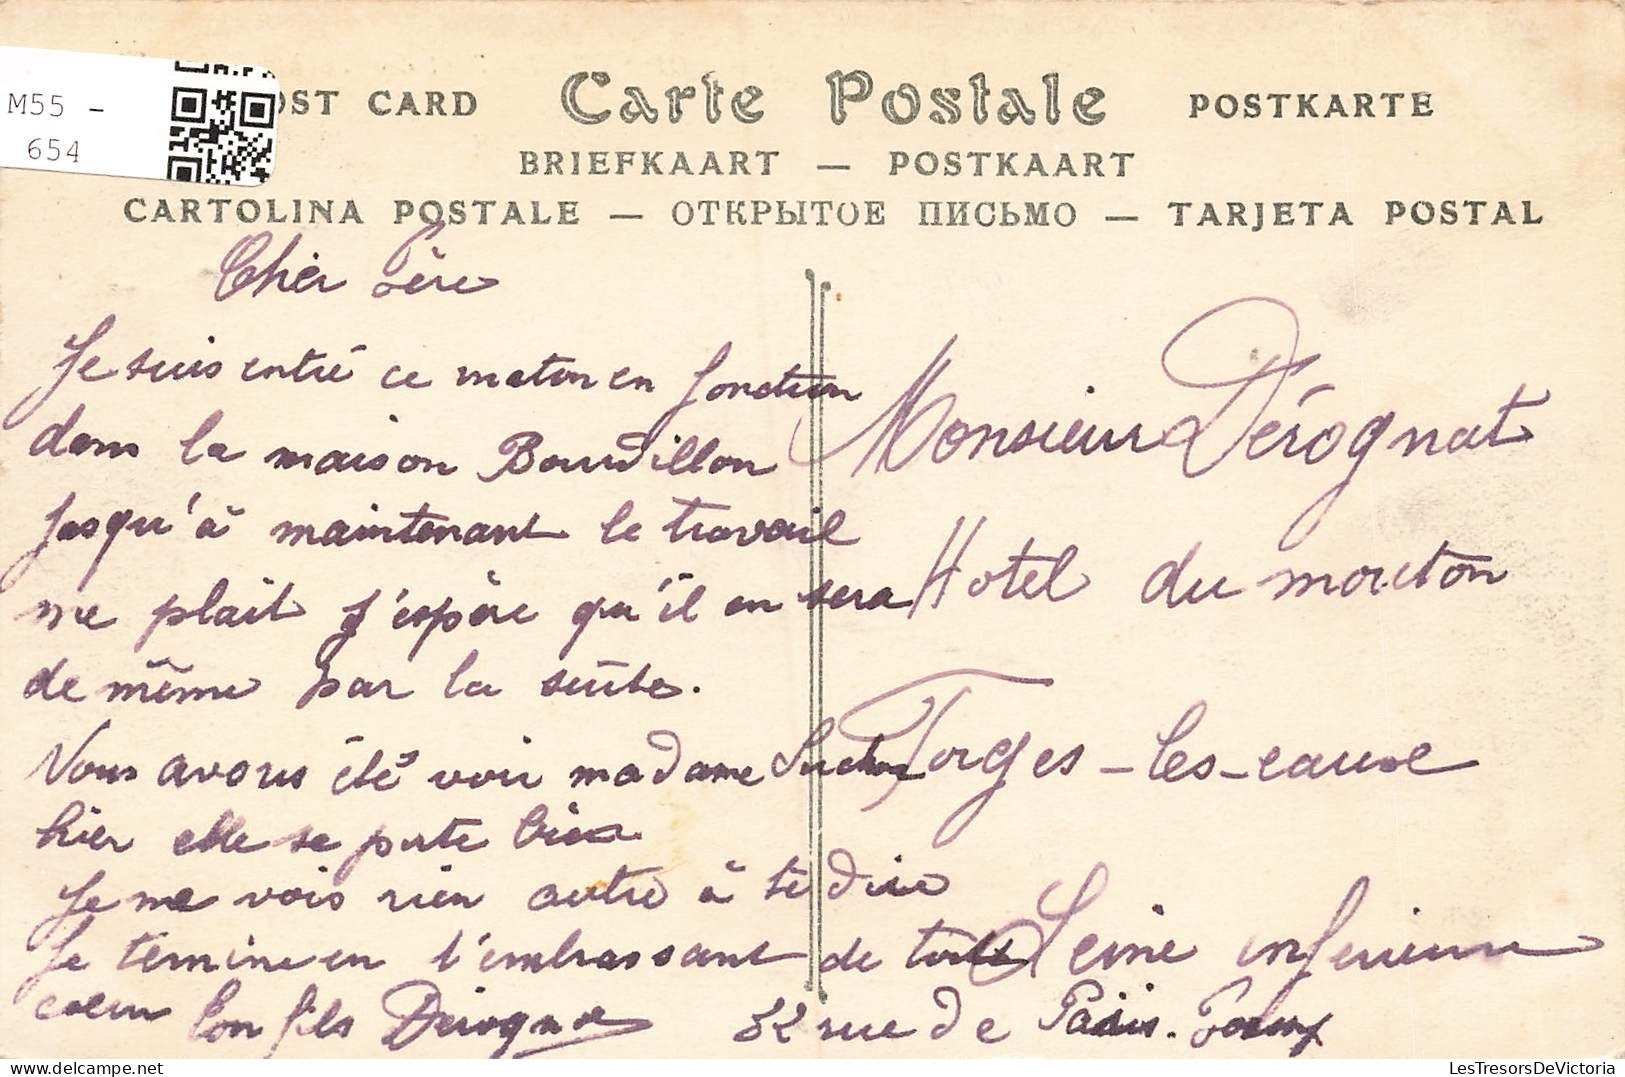 M55 -
654
OST CARD Carte Postale POSTKARTE
BRIEFKAART — POSTKAART
CARTOLINA POSTALE — ОТКРЫТОЕ ПИСЬМО — TARJETA POSTAL
Cher Père
Je suis entré ce matin en fonction
dans la maison Bourdillon
jusqu'à maintenant le travail
me plait j'espère qu'il en sera
de même par la suite.
Nous avons été voir madame
hier elle se porte bien
Je ne vois rien autre à te dire
Je termine en t'embrassant de tout
coeur Ton fils Dérognat
32 rue de Paris.
Monsieur Dérognat
Hotel du mouton
Forges-les-eaux
Seine inferieure
LesTresorsDeVictoria